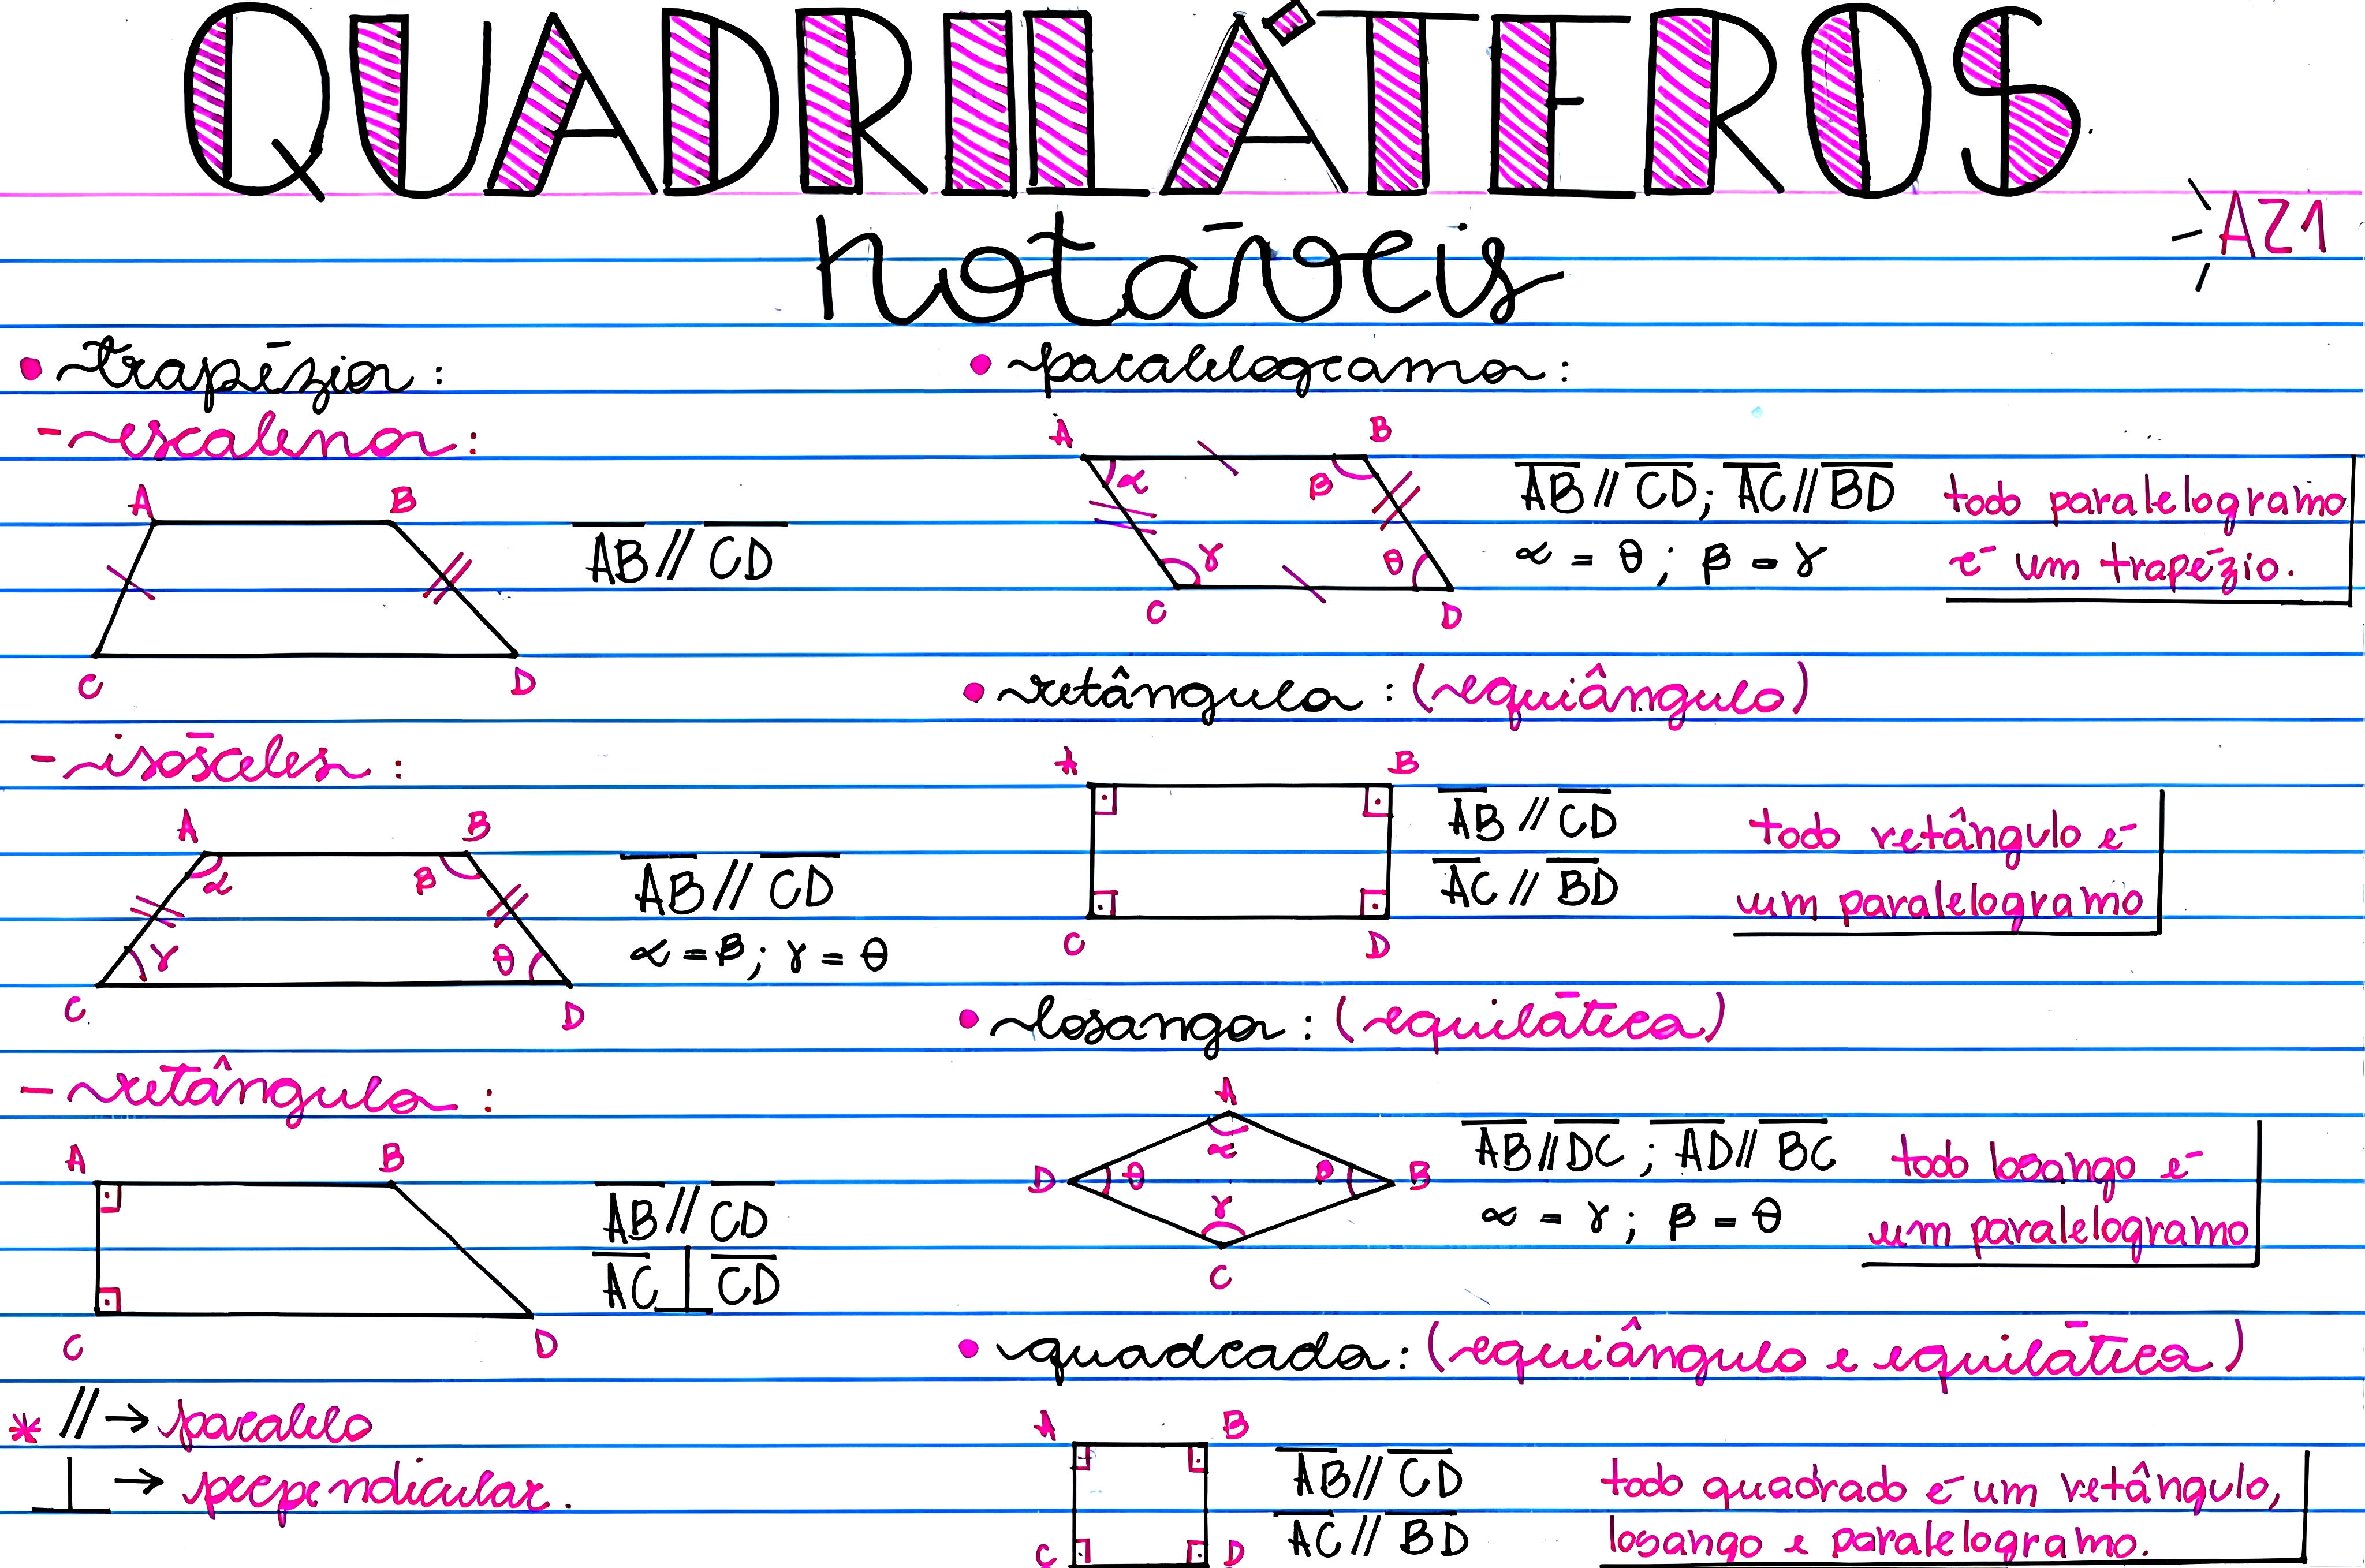 QUADRILÁTEROS
notáveis
AZ1
• trapézio:
- escaleno:
A B
AB // CD
C D
- isósceles:
A B
α β
AB // CD
γ θ
α = β; γ = θ
C D
- retângulo:
A B
AB // CD
AC ⊥ CD
C D
* // → paralelo
⊥ → perpendicular.
• paralelogramo:
A B
α β
AB // CD; AC // BD
γ θ
α = θ; β = γ
C D
todo paralelogramo
é um trapézio.
• retângulo: (equiângulo)
A B
AB // CD
AC // BD
C D
todo retângulo é
um paralelogramo
• losango: (equilátero)
A
α
D θ β B
γ
C
AB // DC; AD // BC
α = γ; β = θ
todo losango é
um paralelogramo
• quadrado: (equiângulo e equilátero)
A B
AB // CD
AC // BD
C D
todo quadrado é um retângulo,
losango e paralelogramo.